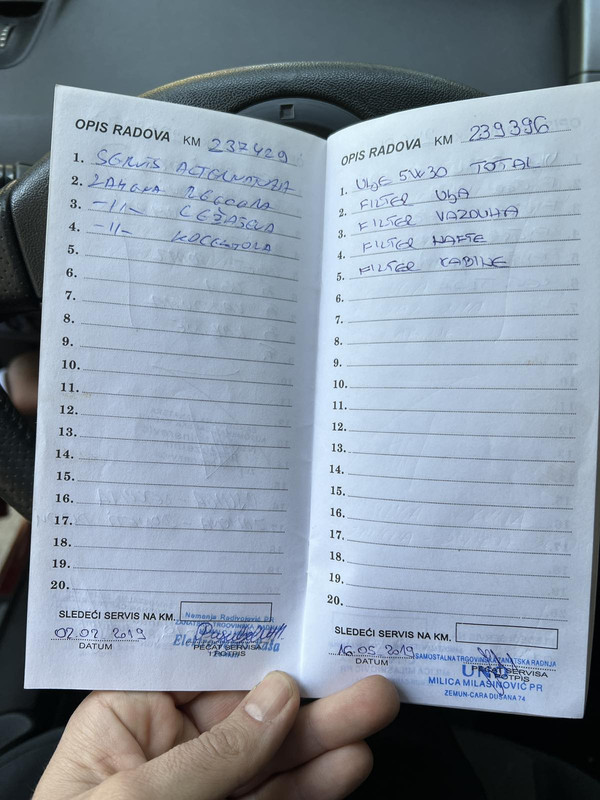 OPIS RADOVA KM 237429
1. SERVIS ALTERNATORA
2. ZAMENA REGLERA
3. -11- LEŽAJEVA
4. -11- KOLEKTORA
5.
6.
7.
8.
9.
10.
11.
12.
13.
14.
15.
16.
17.
18.
19.
20.
SLEDEĆI SERVIS NA KM.
Nemanja Radivojević PR
02.02.2019
DATUM
PEČAT SERVISA
POTPIS
OPIS RADOVA KM 239396
1. UljE 5W30 TOTAL
2. FILTER UljA
3. FILTER VAZDUHA
4. FILTER NAFTE
5. FILTER KABINE
6.
7.
8.
9.
10.
11.
12.
13.
14.
15.
16.
17.
18.
19.
20.
SLEDEĆI SERVIS NA KM.
16.05.2019
DATUM
SAMOSTALNA TRGOVINSKA ZANATSKA RADNJA
PEČAT SERVISA
POTPIS
MILICA MILAŠINOVIĆ PR
ZEMUN-CARA DUŠANA 74